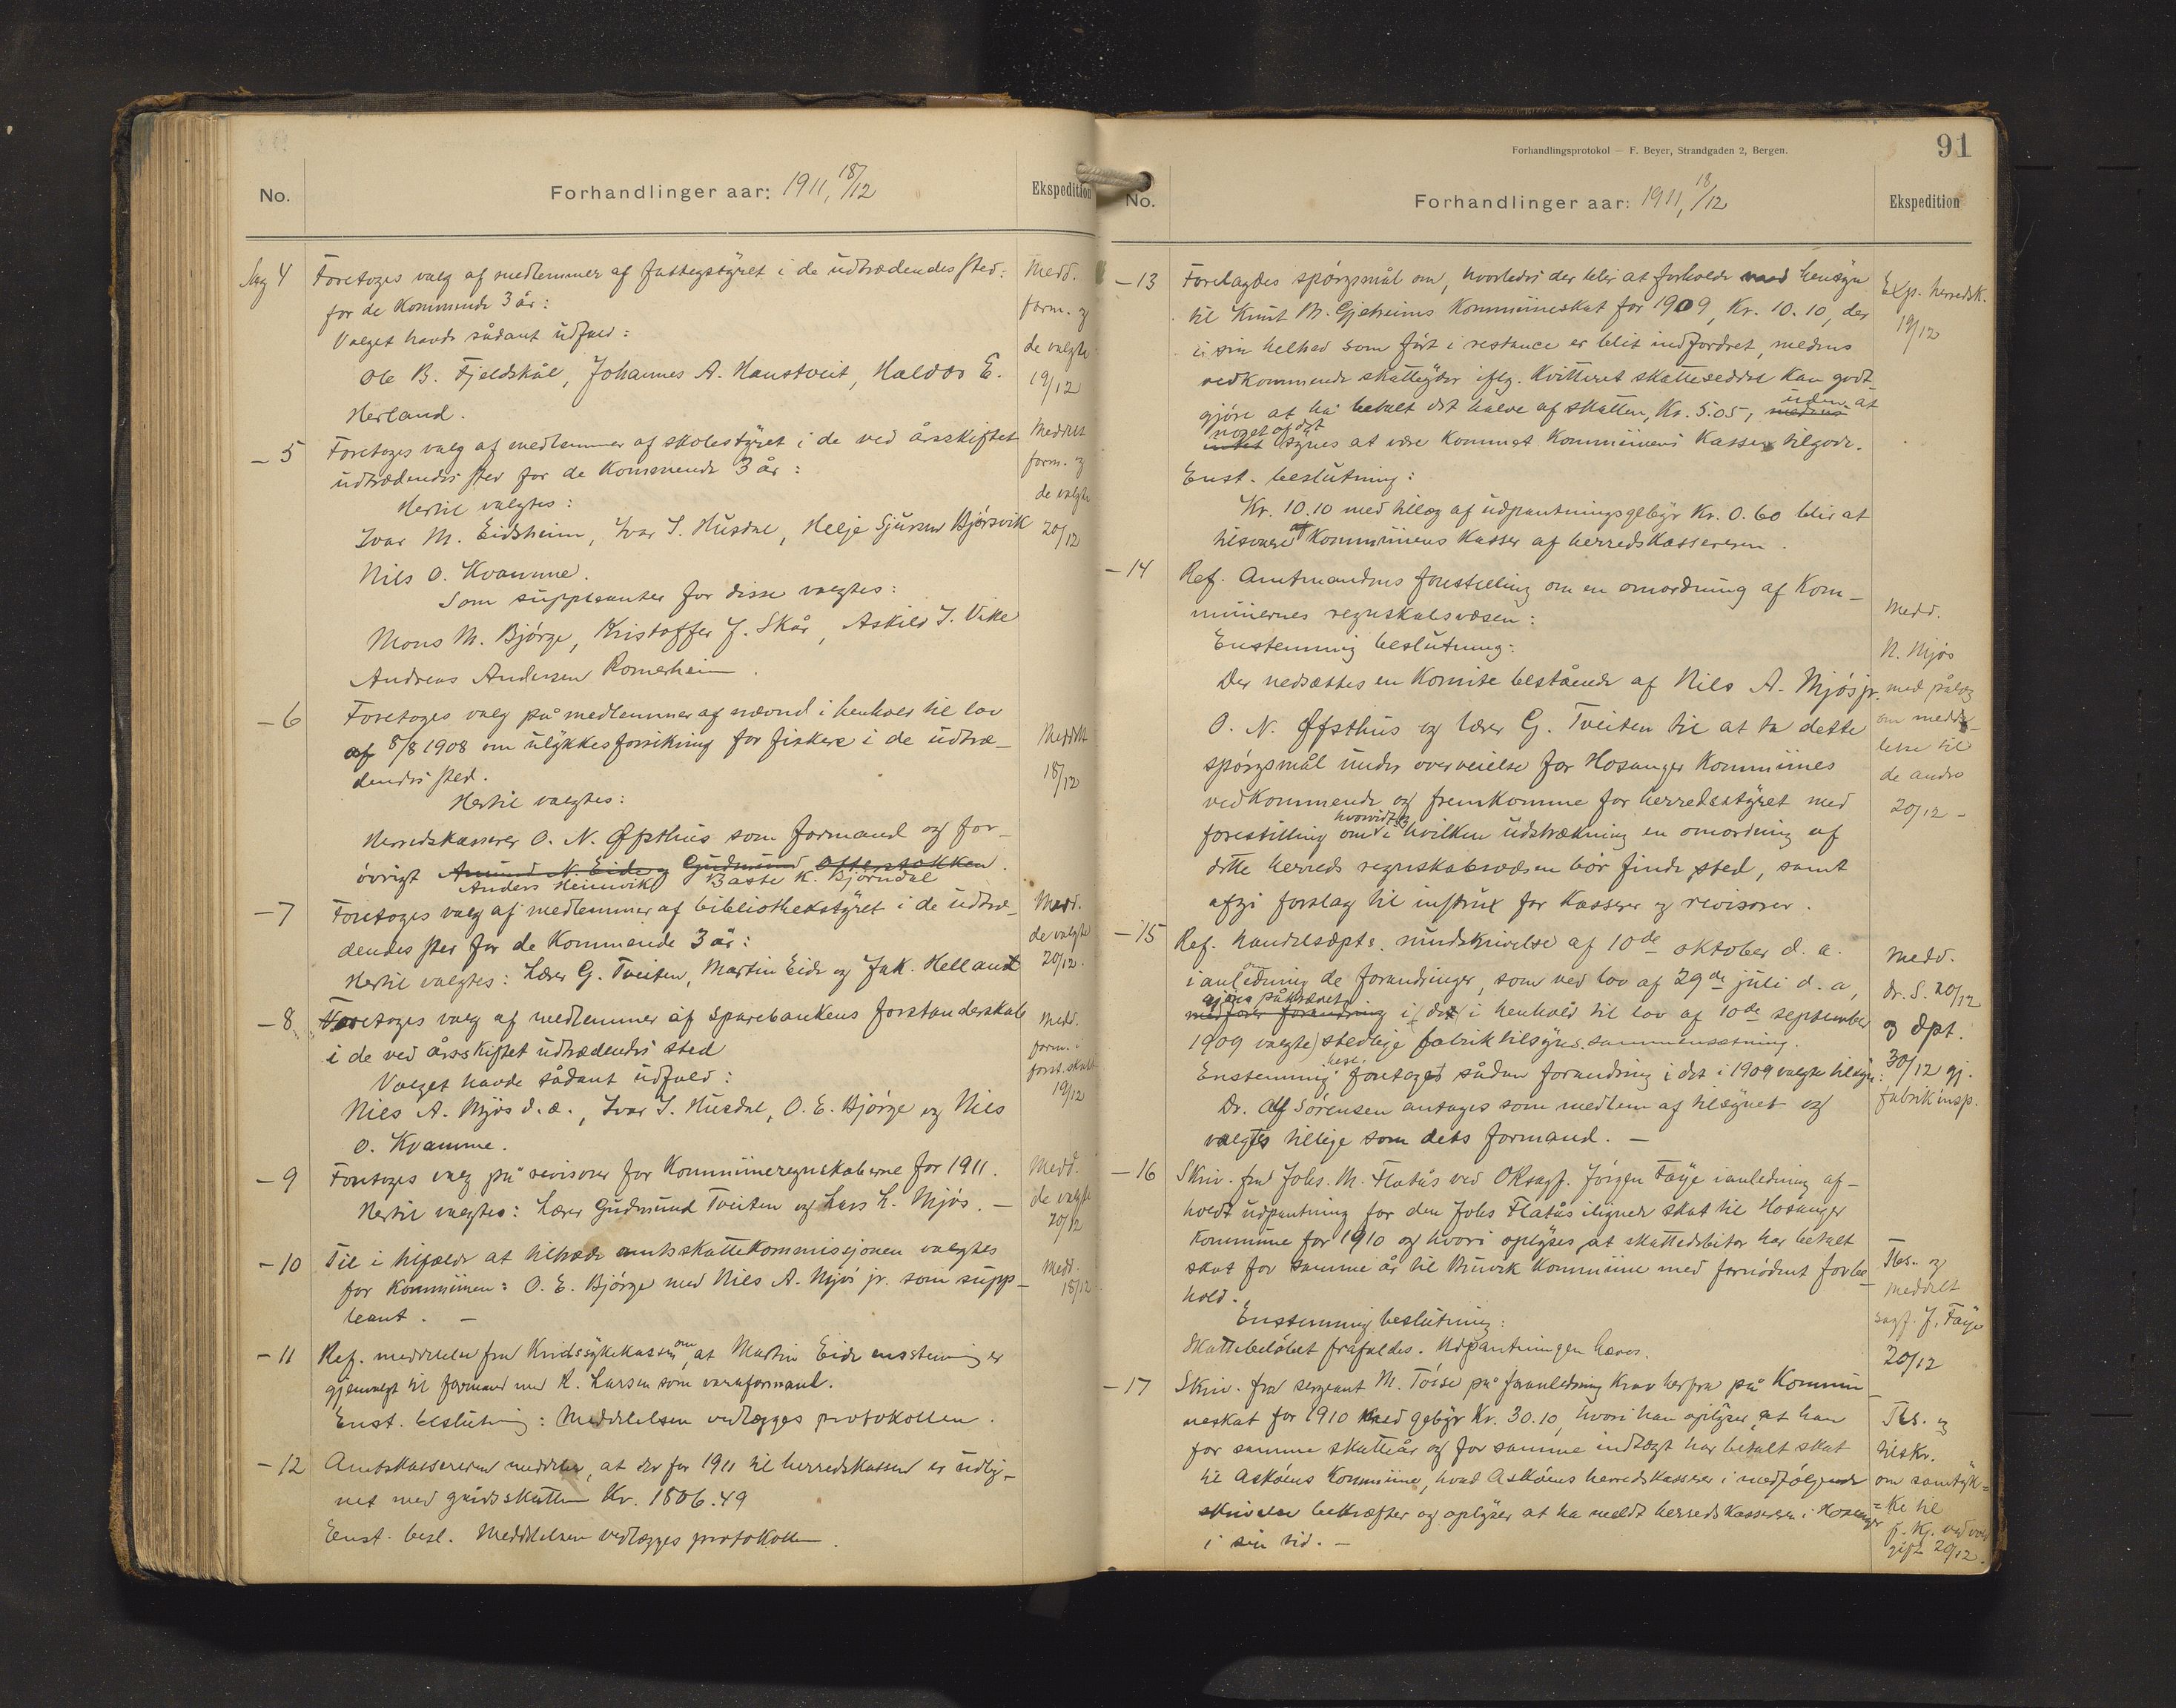 No.
Forhandlinger aar: 1911, 18/12
Ekspedition
Sag 4
Foretoges valg af medlemmer af fattigstyret i de udtrædendes sted:
for de kommende 3 år:
Valget havde sådant udfald:
Ole B. Fjeldskål, Johannes A. Haustveit, Haldor E.
Herland.
Medd.
form. og
de valgte
19/12
- 5
Foretoges valg af medlemmer af skolestyret i de ved årsskiftet
udtrædendes sted for de kommende 3 år:
Hertil valgtes:
Ivar M. Eidsheim, Ivar S. Husdal, Helje Sjursen Bjørsvik
Nils O. Kvamme.
Som suppleanter for disse valgtes:
Mons M. Bjørge, Kristoffer J. Skår, Askild I. Vike
Andreas Andersen Romerheim.
Meddelt
form. og
de valgte
20/12
- 6
Foretoges valg på medlemmer af nævnd i henhold til lov
af 8/8 1908 om ulykkesforsikring for fiskere i de udtræ-
dendes sted.
Hertil valgtes:
Herredskasserer O. N. Øfsthus som formand og for-
øvrigt Amund N. Eide og Gudmund Otterstøkken.
Anders Heimvik Baste K. Bjørndal
Meddelt
18/12
- 7
Foretoges valg af medlemmer af bibliothekstyret i de udtræ-
dendes sted for de kommende 3 år:
Hertil valgtes: Lærer G. Tveiten, Martin Eide og Jak. Helland
Medd.
de valgte
20/12.
- 8
Foretoges valg af medlemmer af sparebankens forstanderskab
i de ved årsskiftet udtrædendes sted
Valget havde sådant udfald:
Nils A. Mjøs d.æ., Ivar S. Husdal, O. E. Bjørge og Nils
O. Kvamme.
Medd.
form. i
forst.skab
19/12
- 9
Foretoges valg på revisorer for kommuneregnskaberne for 1911.
Hertil valgtes: Lærer Gudmund Tveiten og Lars L. Mjøs. -
Medd.
de valgte
20/12
- 10
Til i tilfælde at tiltræde amtsskattekommissjonen valgtes
for kommunen: O. E. Bjørge med Nils A. Mjøs jr. som supp-
leant. -
Medd.
18/12
- 11
Ref. meddelelse fra Kredssykekassen om, at Martin Eide ensstemmig er
gjenvalgt til formand med K. Larsen som varaformand.
Enst. beslutning: Meddelelsen vedlægges protokollen.
- 12
Amtskassereren meddeler, at der for 1911 til herredskassen er udlig-
net med gårdsskatten Kr. 1806.49
Enst. besl. Meddelelsen vedlægges protokollen.
Forhandlingsprotokol — F. Beyer, Strandgaden 2, Bergen.
91
No.
Forhandlinger aar: 1911, 18/12
Ekspedition
- 13
Forelagdes spørgsmål om, hvorledes der blir at forholde med hensyn
til Knut M. Gjeteims kommuneskat for 1909, Kr. 10.10, der
i sin helhed som ført i restance er blit indfordret, medens
vedkommende skatteyder iflg. kvitteret skatteseddel kan godt-
gjøre at ha betalt det halve af skatten, Kr. 5.05, medens uden at
intet noget af det synes at være kommet kommunens kasse tilgode.
Enst. beslutning:
Kr. 10.10 med tillæg af udpantningsgebyr Kr. 0.60 blir at
tilsvare af kommunens kasse af herredskassereren.
Exp. herredsk.
19/12
- 14
Ref. Amtmandens forestilling om en omordning af kom-
munernes regnskabsvæsen:
Enstemmig beslutning:
Der nedsættes en komite bestående af Nils A. Mjøs jr.
O. N. Øfsthus og lærer G. Tveiten til at ta dette
spørgsmål under overveielse for Hosanger kommunes
vedkommende og fremkomme for herredsstyret med
forestilling om hvorvidt og i hvilken udstrækning en omordning af
dette herreds regnskabsvæsen bør finde sted, samt
afgi forslag til instrux for kasserer og revisorer.
Medd.
N. Mjøs
med pålæg
om medde-
lelse til
de andre
20/12 -
- 15
Ref. handelsdpts. rundskrivelse af 10de oktober d. a.
i anledning de forandringer, som ved lov af 29de juli d. a,
medfører forandring gjøres påkrævet i (det i henhold til lov af 10de september
1909 valgte) stedlige fabriktilsyns sammensætning.
Enstemmig besl. foretoges sådan forandring i det i 1909 valgte tilsyn:
Dr. Alf Sørensen antages som medlem af tilsynet og
valgtes tillige som dets formand. -
Medd.
dr. S. 20/12
og dpt.
30/12 gj.
fabrikinsp.
- 16
Skriv. fra Johs. M. Flatås ved Oksagf. Jørgen Faye i anledning af-
holdt udpantning for den Johs Flatås ilignede skat til Hosanger
kommune for 1910 og hvori oplyses, at skattedebitor har betalt
skat for samme år til Bruvik kommune med fornødent forbe-
hold.
Enstemmig beslutning:
Skattebeløbet frafaldes. Udpantningen hæves.
Tles. og
meddelt
sagf. J. Faye
20/12
- 17
Skriv. fra sergeant M. Toise på foranledning krav herfra på kommu-
neskat for 1910 med gebyr Kr. 30.10, hvori han oplyser at han
for samme skatteår og for samme indtægt har betalt skat
til Askøens kommune, hvad Askøens herredskasserer i medfølgende
skrivelse bekræfter og oplyser at ha meldt herredskassereren i Hosanger
i sin tid. -
Tls. og
tilskr.
om samtyk=
=ke til
20/12.